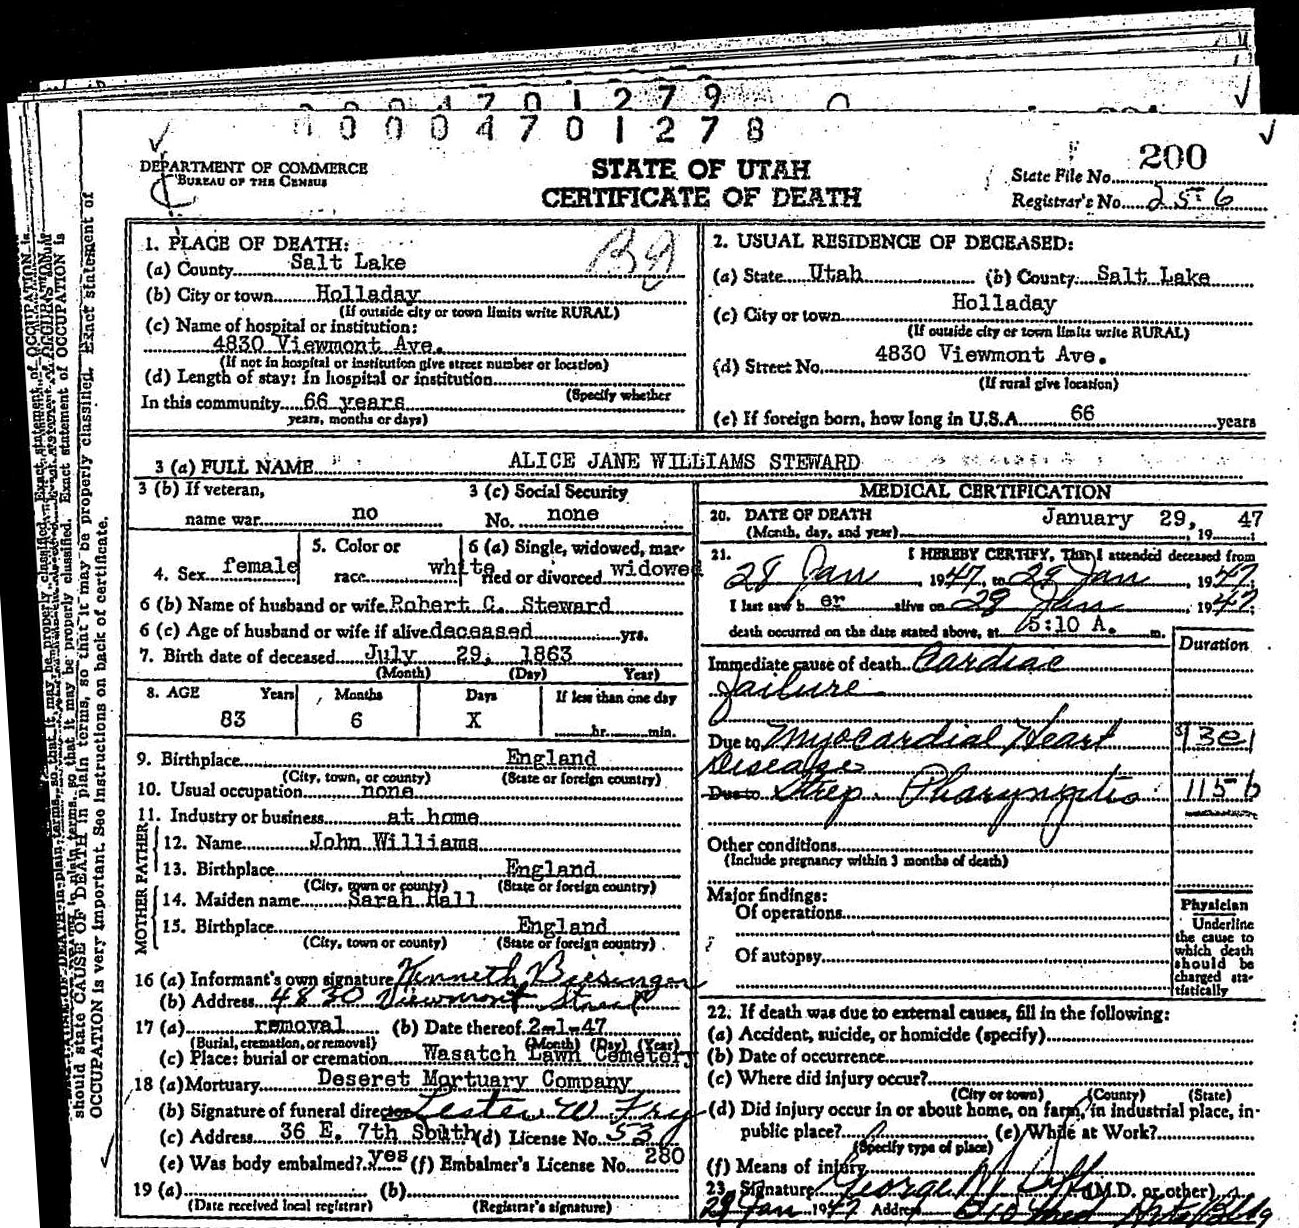 0 0 0 4 7 0 1 2 7 9
0 0 0 4 7 0 1 2 7 8
DEPARTMENT OF COMMERCE
BUREAU OF THE CENSUS
STATE OF UTAH
CERTIFICATE OF DEATH
State File No. 200
Registrar's No. 256
1. PLACE OF DEATH:
(a) County Salt Lake
(b) City or town Holladay
(If outside city or town limits write RURAL)
(c) Name of hospital or institution:
4830 Viewmont Ave.
(If not in hospital or institution give street number or location)
(d) Length of stay: In hospital or institution
(Specify whether
In this community 66 years
years, months or days)
2. USUAL RESIDENCE OF DECEASED:
(a) State Utah (b) County Salt Lake
(c) City or town Holladay
(If outside city or town limits write RURAL)
(d) Street No. 4830 Viewmont Ave.
(If rural give location)
(e) If foreign born, how long in U.S.A. 66 years
3 (a) FULL NAME ALICE JANE WILLIAMS STEWARD
3 (b) If veteran, name war no
3 (c) Social Security No. none
4. Sex female
5. Color or race white
6 (a) Single, widowed, married or divorced widowed
6 (b) Name of husband or wife Robert C. Steward
6 (c) Age of husband or wife if alive deceased yrs.
7. Birth date of deceased July 29, 1863
(Month) (Day) Year)
8. AGE Years Months Days If less than one day
83 6 X hr. min.
9. Birthplace England
(City, town, or county) (State or foreign country)
10. Usual occupation none
11. Industry or business at home
FATHER
12. Name John Williams
13. Birthplace England
(City, town or county) (State or foreign country)
MOTHER
14. Maiden name Sarah Hall
15. Birthplace England
(City, town or county) (State or foreign country)
16 (a) Informant's own signature Kenneth Biesinger
(b) Address 4830 Viewmont Street
17 (a) removal (b) Date thereof 2-1-47
(Burial, cremation, or removal) (Month) (Day) (Year)
(c) Place: burial or cremation Wasatch Lawn Cemetery
18 (a) Mortuary Deseret Mortuary Company
(b) Signature of funeral director Lester W Fry
(c) Address 36 E. 7th South (d) License No. 530
(e) Was body embalmed? yes (f) Embalmer's License No. 280
19 (a) (b)
(Date received local registrar) (Registrar's signature)
MEDICAL CERTIFICATION
20. DATE OF DEATH January 29, 19 47
(Month, day, and year)
21. I HEREBY CERTIFY, That I attended deceased from
28 Jan, 1947, to 29 Jan, 1947;
I last saw h er alive on 29 Jan, 1947;
death occurred on the date stated above, at 5:10 A. m.
Duration
Immediate cause of death Cardiac
failure
Due to Myocardial Heart
Disease
Due to Strep. Pharyngitis
115 b
Other conditions
(Include pregnancy within 3 months of death)
Major findings:
Of operations
Of autopsy
Physician
Underline
the cause to
which death
should be
charged sta-
tistically
22. If death was due to external causes, fill in the following:
(a) Accident, suicide, or homicide (specify)
(b) Date of occurrence
(c) Where did injury occur?
(City or town) (County) (State)
(d) Did injury occur in or about home, on farm, in industrial place, in
public place? (e) While at Work?
(Specify type of place)
(f) Means of injury
23. Signature George (M.D. or other)
29 Jan 1947 Address Bldg
should state CAUSE OF DEATH in plain terms, so that it may be properly classified. Exact statement of
OCCUPATION is very important. See instructions on back of certificate.